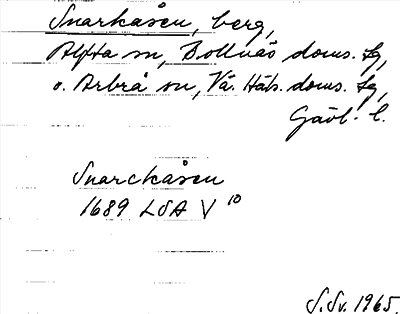 Snarkåsen, berg,
Alfta sn, Bollnäs doms. lg,
o. Arbrå sn, Vä. Häls. doms. lg,
Gävl. l.
Snarckåsen
1689 LSA V 10
S.Sv. 1965.